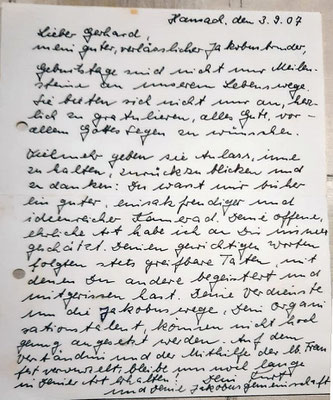 Hamsach, den 3.9.07
Lieber Gerhard,
mein guter, verlässlicher Jakobusbruder,
Geburtstage sind nicht nur Meilen-
steine an unserem Lebenswege.
Sie bieten sich nicht nur an, herz-
lich zu gratulieren, alles Gute, vor
allem Gottes Segen zu wünschen.
Vielmehr geben sie Anlass, inne
zu halten, zurückzublicken und
zu danken: Du warst mir bisher
ein guter, einsatzfreudiger und
ideenreicher Kamerad. Deine offene,
ehrliche Art habe ich an Dir immer
geschätzt. Deinen gerichtigen Worten
folgten stets greifbare Taten, mit
denen Du andere begeistert und
mitgerissen hast. Deine Verdienste
um die Jakobuswege, Dein Organi
sationstalent, können nicht hoch
genug angesetzt werden. Auf dem
Verständnis und der Mithilfe der lb. Frau
fest verwurzelt, bleibe uns noch lange
in Deiner Art erhalten! Dein
und Deine Jakobusgemeinschaft